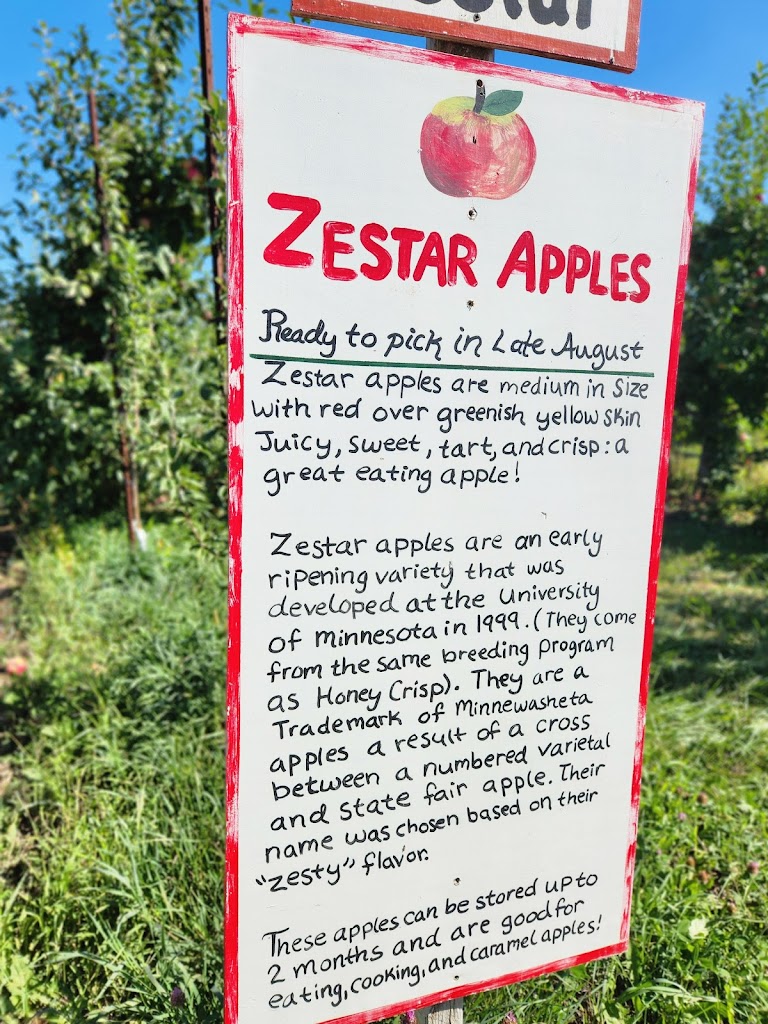 ZESTAR APPLES
Ready to pick in Late August
Zestar apples are medium in size
with red over greenish yellow skin
Juicy, sweet, tart, and crisp: a
great eating apple!
Zestar apples are an early
ripening variety that was
developed at the University
of Minnesota in 1999. (They come
from the same breeding program
as Honey Crisp). They are a
Trademark of Minnewasheta
apples a result of a cross
between a numbered varietal
and state fair apple. Their
name was chosen based on their
"zesty" flavor.
These apples can be stored up to
2 months and are good for
eating, cooking, and caramel apples!